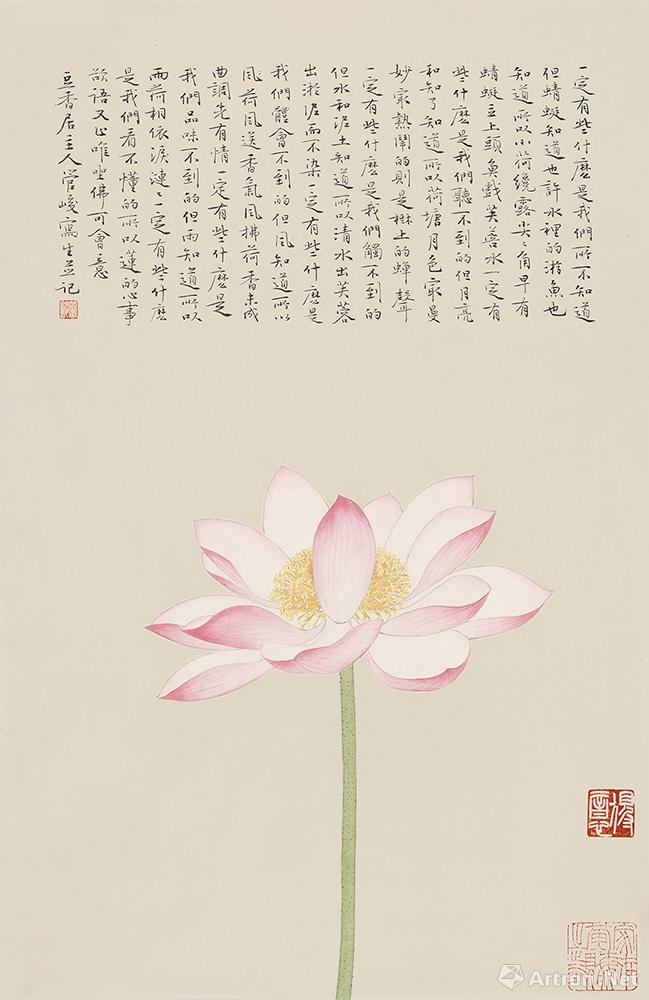 一定有些什麼是我們所不知道
但蜻蜓知道也許水裡的游魚也
知道所以小荷纔露尖々角早有
蜻蜓立上頭魚戲芙蓉水一定有
些什麼是我們聽不到的但月亮
和知了知道所以荷塘月色寂曼
妙寂熱鬧的則是樹上的蟬聲
一定有些什麼是我們觸不到的
但水和泥土知道所以清水出芙蓉
出淤泥而不染一定有些什麼是
我們體會不到的但風知道所以
風荷風送香氣風拂荷香未成
曲調先有情一定有些什麼是
我們品味不到的但雨知道所以
雨荷相依淚漣々一定有些什麼
是我們看不懂的所以蓮的心事
欲語又止唯坐佛可會意
豆香居主人管峻寫生並記
Artron.Net